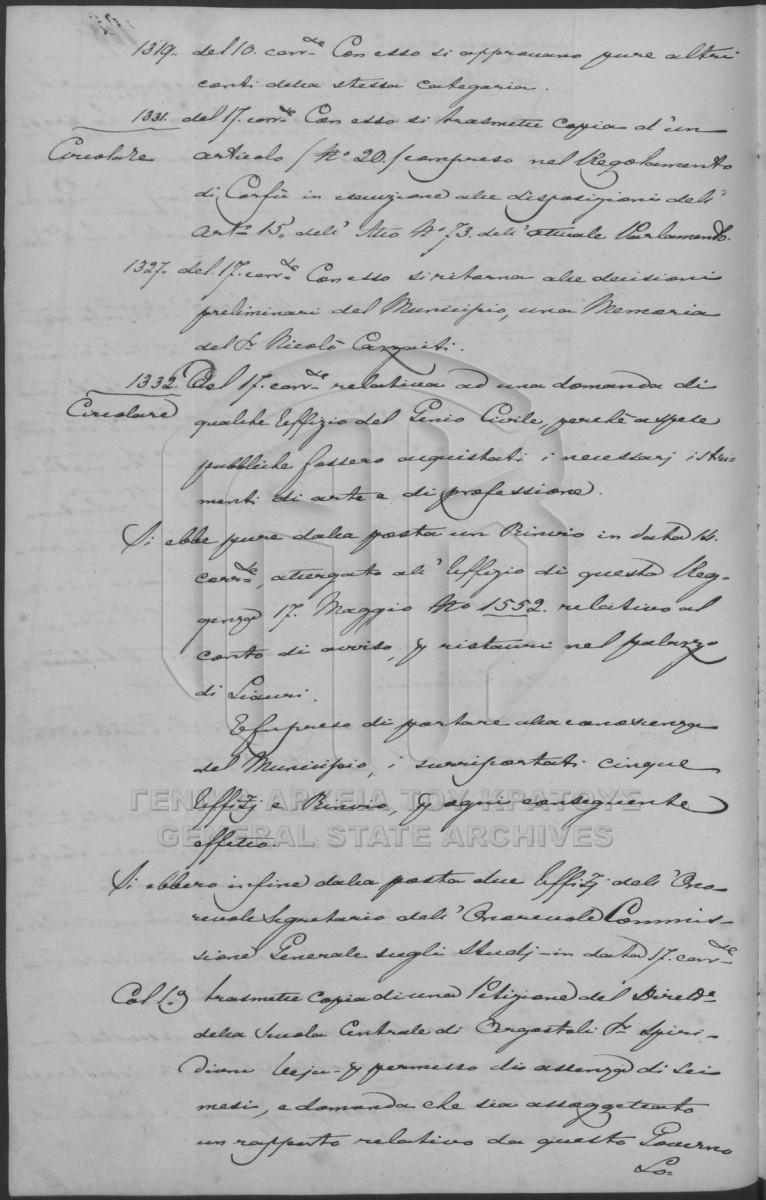 1319. del 10. corr.te Con esso si approvano pure altri
conti della stessa categoria.
1331. del 17. corr.te Con esso si trasmette copia d'un
Circolare articolo (No 20.) compreso nel Regolamento
di Corfù in esecuzione alle disposizioni dell'
Arto 15. dell' Atto No 73. dell' attuale Parlamento.
1327. del 17. corr.te Con esso si ritorna alle decisioni
preliminari del Municipio, una Memoria
del Sr Nicolò
1332. Del 17. corr.te relativa ad una domanda di
Circolare qualche Uffizio del Genio Civile, perchè a spese
pubbliche fossero acquistati i necessarj istru-
menti di arte e di professione.
Si ebbe pure dalla posta un Rinvio in data 14.
corr.te, attergato all' Uffizio di questa Reg-
genza 17. Maggio No 1552. relativo al
conto di avviso, p ristauri nel palazzo
di Lixuri.
E fu preso di portare alla conoscenza
del Municipio, i surriportati cinque
Uffizj e Rinvio, p ogni conseguente
effetto.
ΓΕΝΙΚΑ ΑΡΧΕΙΑ ΤΟΥ ΚΡΑΤΟΥΣ
GENERAL STATE ARCHIVES
Si ebbero infine dalla posta due Uffizj dell' Ono-
revole Segretario dell' Onorevole Commis-
sione Generale sugli Studj in data 17. corr.te
Col 1.o trasmette copia di una Petizione del Dirett.e
della Scuola Centrale di Argostoli Sr Spiri-
dion p permesso di assenza di sei
mesi, e domanda che sia assoggettato
un rapporto relativo da questo Governo
Lo=